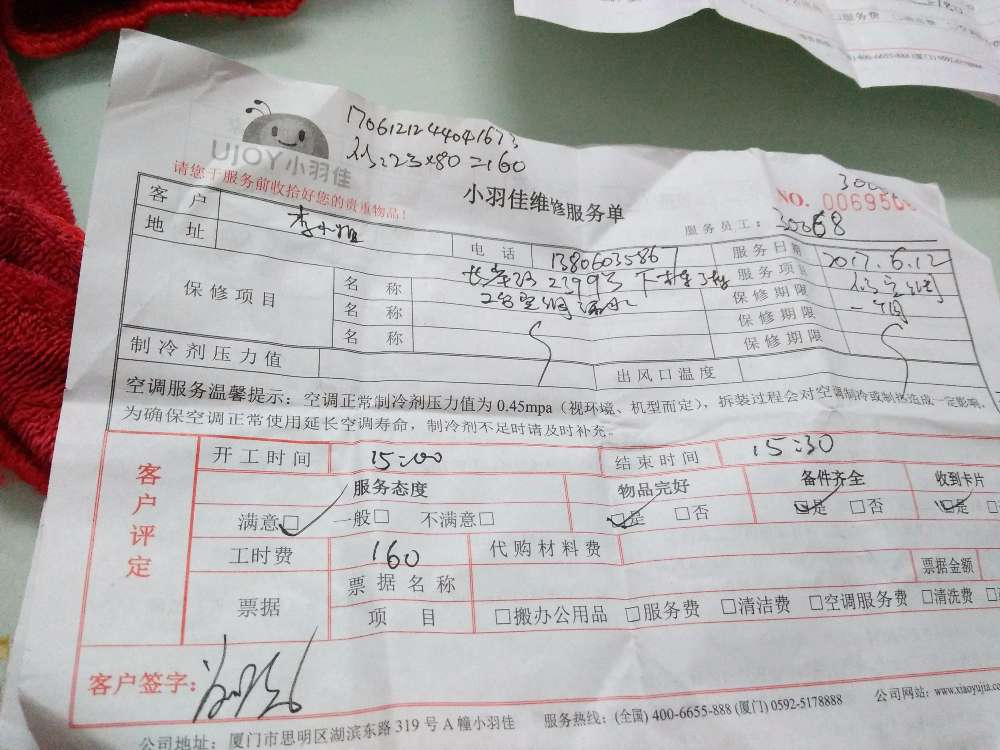 服务费
400-6655-888 (厦门) 0592-5178888
17061212444041673
23×80=160
UJOY小羽佳
请您于服务前收拾好您的贵重物品!
小羽佳维修服务单
NO. 00695
服务员工: 30068
客 户 李小姐 电 话 13806035867 服务日期 2017.6.12
地 址 服务项目
保修项目 名 称 2台空调漏水 保修期限 一周
名 称 保修期限
名 称 保修期限
制冷剂压力值 出风口温度
空调服务温馨提示: 空调正常制冷剂压力值为 0.45mpa (视环境、机型而定), 拆装过程会对空调制冷或制热造成一定影响,
为确保空调正常使用延长空调寿命, 制冷剂不足时请及时补充。
客户评定
开工时间 15:00 结束时间 15:30
服务态度 物品完好 备件齐全 收到卡片
满意☑ 一般□ 不满意□ ☑是 □否 ☑是 □否 ☑是
工时费 160 代购材料费
票据 票据名称 票据金额
项 目 □搬办公用品 □服务费 □清洁费 □空调服务费 □清洗费
客户签字:
公司地址: 厦门市思明区湖滨东路 319 号 A 幢小羽佳 服务热线: (全国) 400-6655-888 (厦门) 0592-5178888 公司网站: www.xiaoyujia.co